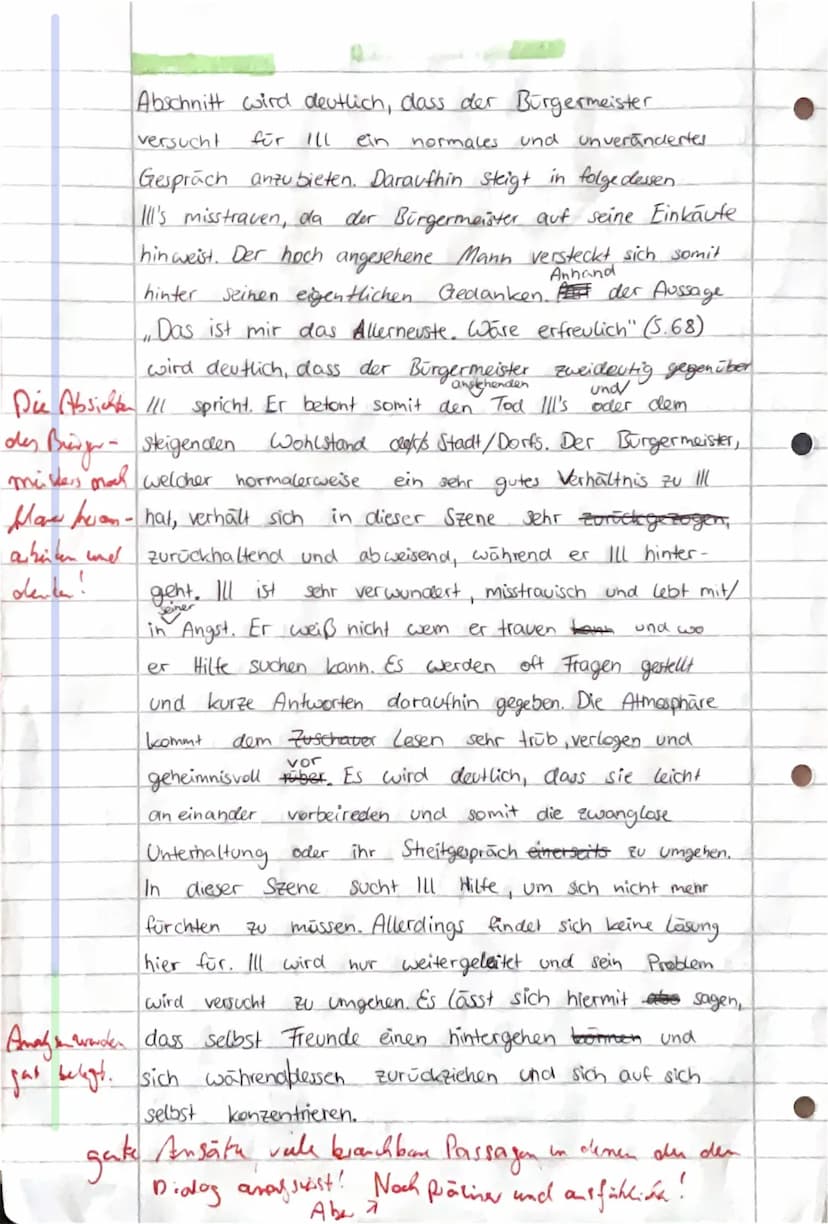 Abschnitt wird deutlich, dass der Bürgermeister
versucht für Ill ein normales und unverändertes
Gespräch anzubieten. Daraufhin steigt in folgedessen
Ill's misstrauen, da der Bürgermeister auf seine Einkäufe
hinweist. Der hoch angesehene Mann versteckt sich somit
Anhand
hinter seinen eigentlichen Gedanken. der Aussage
„Das ist mir das Allerneuste. Wäre erfreulich" (S.68)
wird deutlich, dass der Bürgermeister zweideutig gegenüber
anstehenden und/
Ill spricht. Er betont somit den Tod Ill's oder dem
steigenden Wohlstand Stadt/Dorfs. Der Bürgermeister,
welcher normalerweise ein sehr gutes Verhältnis zu Ill
hat, verhält sich in dieser Szene sehr zurückgezogen,
zurückhaltend und abweisend, während er Ill hinter-
geht. Ill ist sehr verwundert, misstrauisch und lebt mit/
seiner
in Angst. Er weiß nicht wem er trauen kann und wo
er Hilfe suchen kann. Es werden oft Fragen gestellt
und kurze Antworten daraufhin gegeben. Die Atmosphäre
kommt dem Zuschauer Lesen sehr trüb, verlogen und
vor
geheimnisvoll rüber. Es wird deutlich, dass sie leicht
an einander vorbeireden und somit die zwanglose
Unterhaltung oder ihr Streitgespräch einerseits zu umgehen.
In dieser Szene sucht Ill Hilfe, um sich nicht mehr
fürchten zu müssen. Allerdings findet sich keine Lösung
hier für. Ill wird nur weitergeleitet und sein Problem
wird versucht zu umgehen. Es lässt sich hiermit also sagen,
dass selbst Freunde einen hintergehen können und
sich währenddessen zurückziehen und sich auf sich
selbst konzentrieren.
Die Absichten
des Bürger-
meisters noch
klarer heraus-
arbeiten und
deuten!
gut belegt.
gute Ansätze, viele brauchbare Passagen in denen du den
Dialog analysierst! Noch präziser und ausführlicher!
Aber ↗